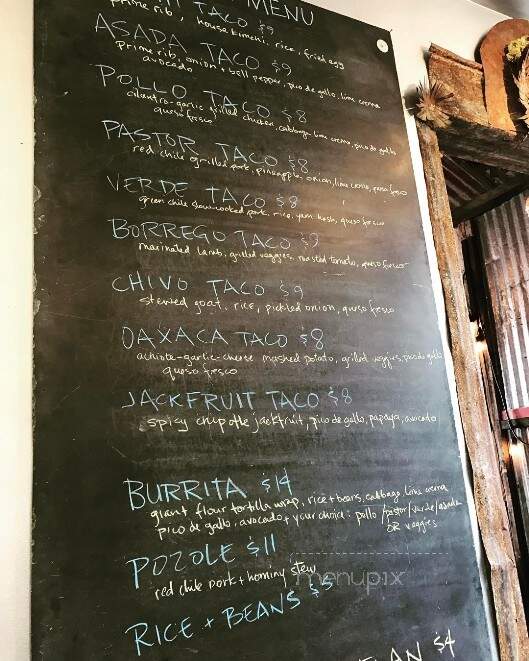 TACO $9
MENU
prime rib, house kimchi, rice, fried egg
ASADA TACO $9
prime rib, onion + bell pepper, pico de gallo, lime crema
avocado
POLLO TACO $8
cilantro-garlic grilled chicken, cabbage, lime crema, pico de gallo
queso fresco
PASTOR TACO $8
red chile grilled pork, pineapple, onion, lime crema, queso fresco
VERDE TACO $8
green chile slow-cooked pork, rice, yam hash, queso fresco
BORREGO TACO $9
marinated lamb, grilled veggies, roasted tomato, queso fresco
CHIVO TACO $9
stewed goat, rice, pickled onion, queso fresco
OAXACA TACO $8
achiote-garlic-cheese mashed potato, grilled veggies, pico de gallo
queso fresco
JACKFRUIT TACO $8
spicy chipotle jackfruit, pico de gallo, papaya, avocado
BURRITA $14
giant flour tortilla wrap, rice + beans, cabbage, lime crema
pico de gallo, avocado + your choice: pollo/pastor/verde/asada
OR veggies
POZOLE $11
red chile pork + hominy stew
menupix
RICE + BEANS $5
AN $4